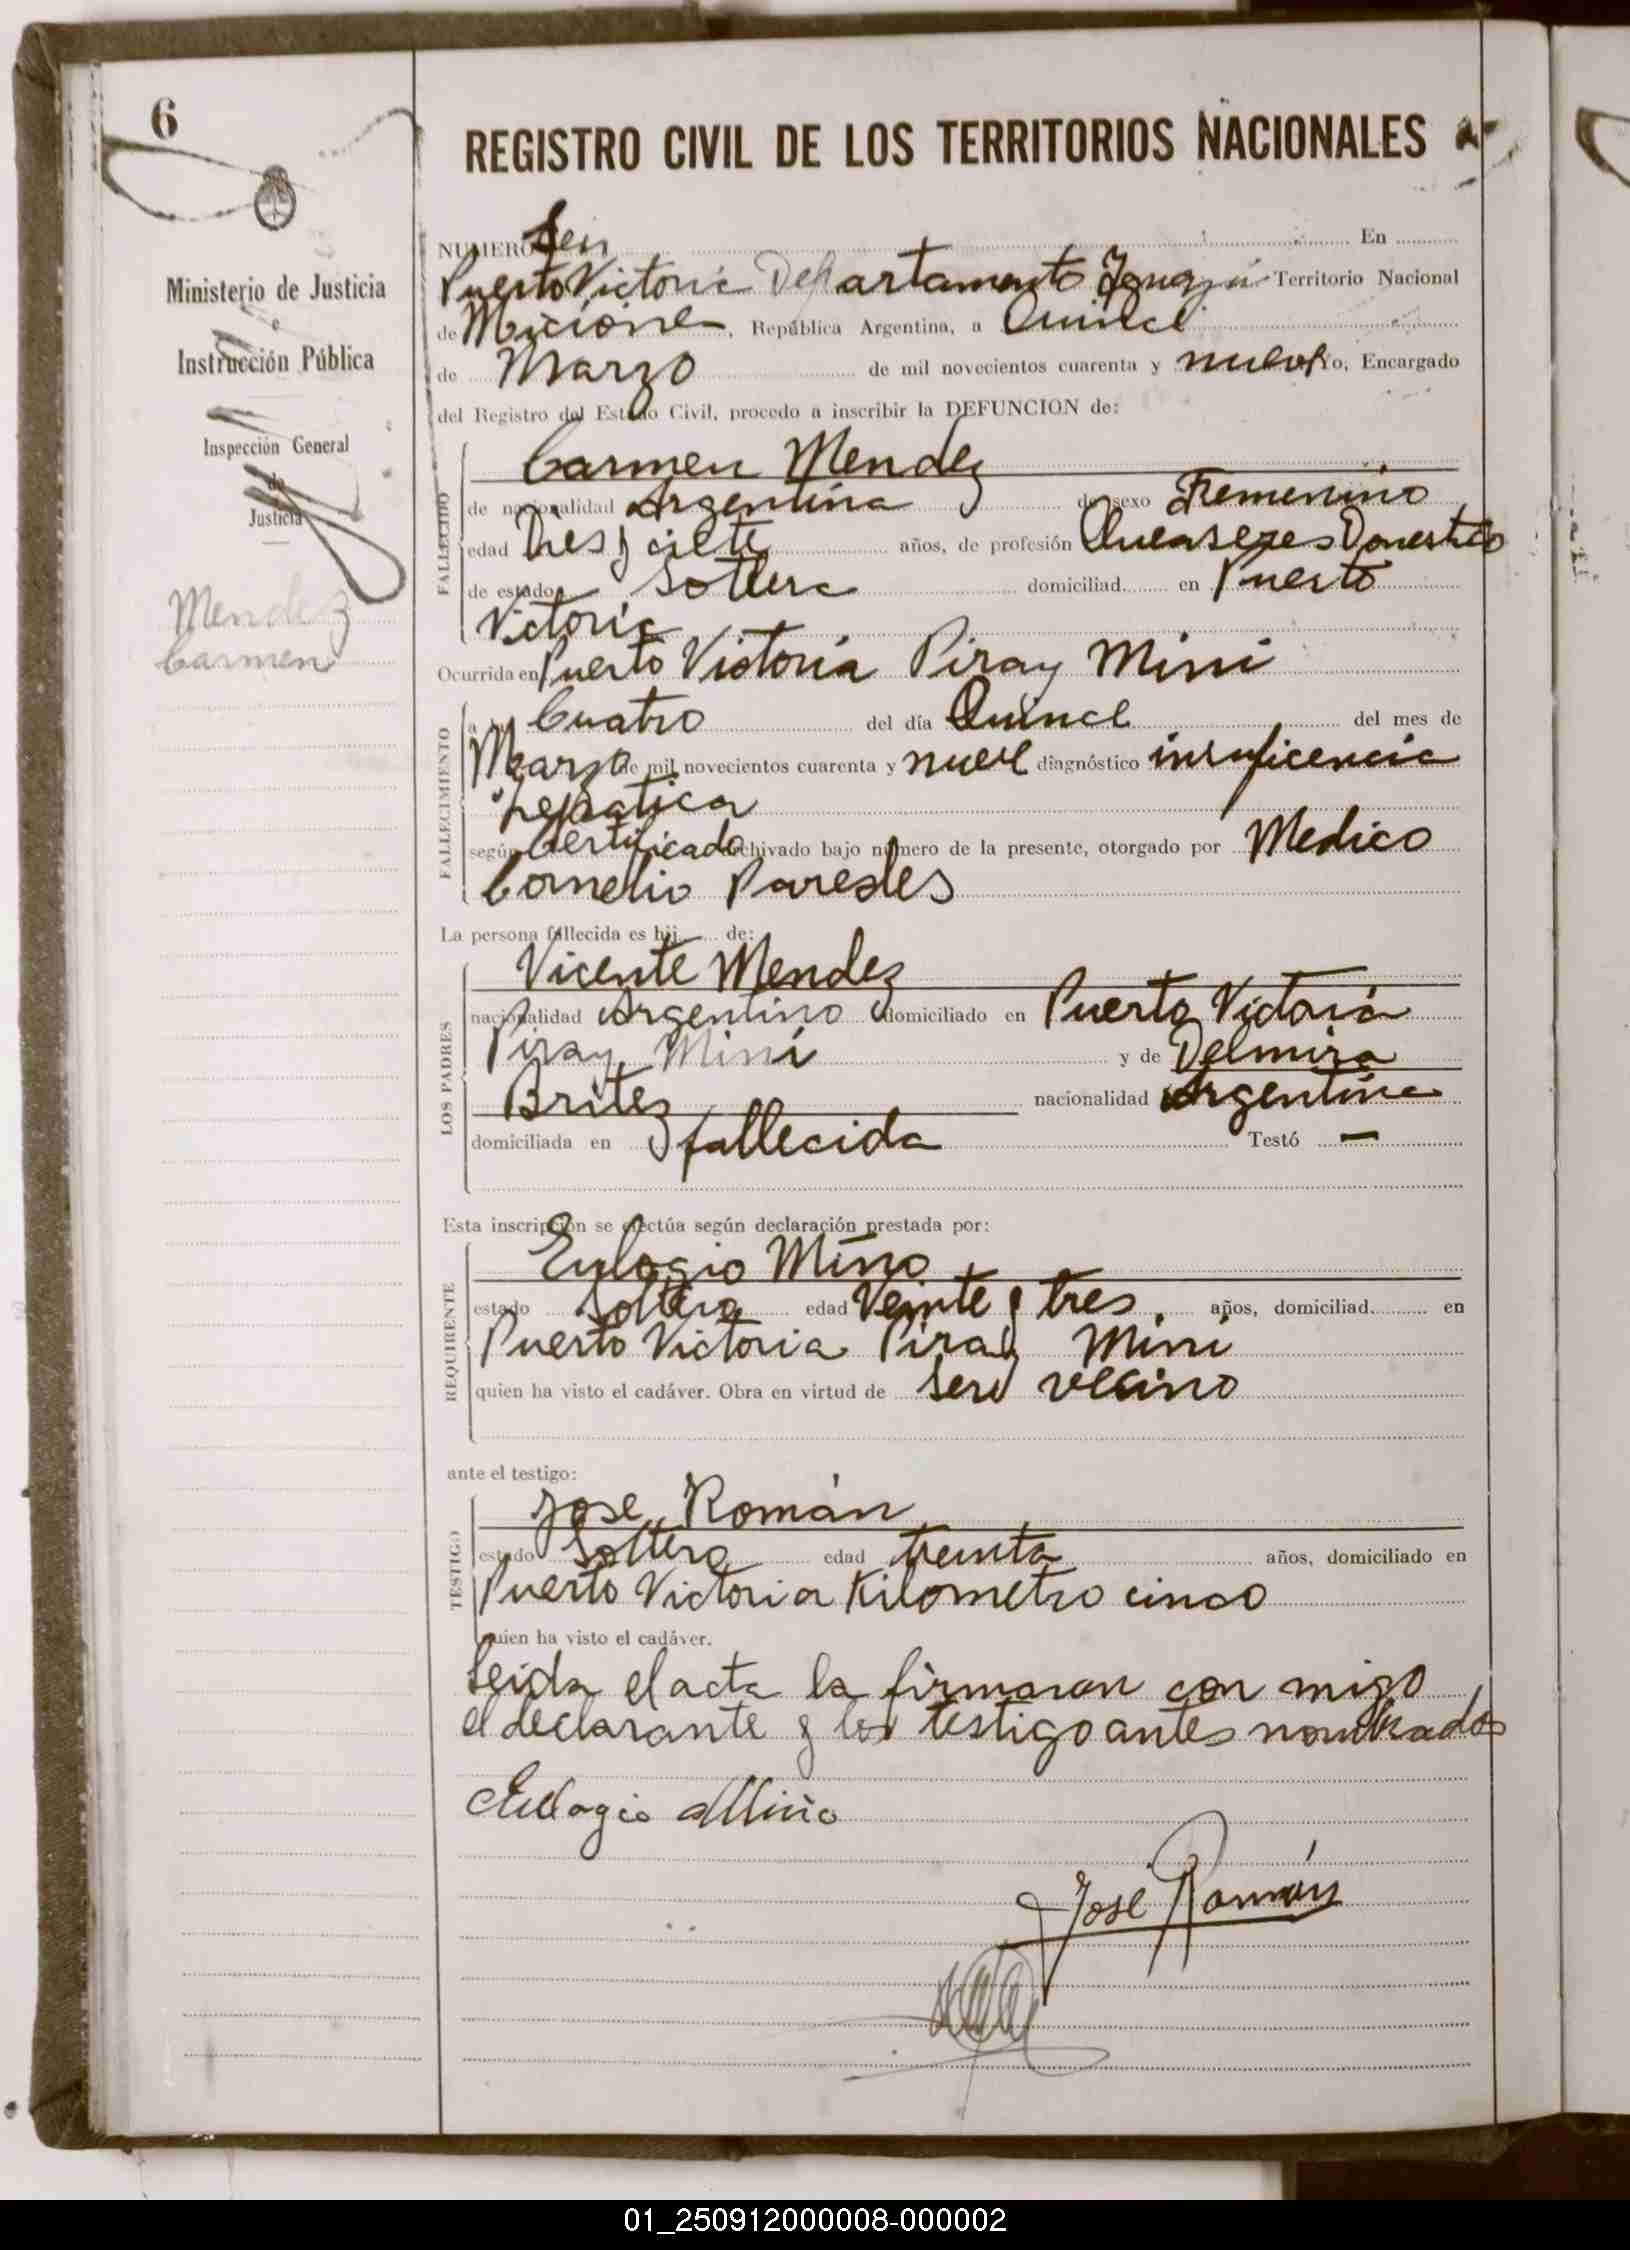 6
REGISTRO CIVIL DE LOS TERRITORIOS NACIONALES
Ministerio de Justicia
e
Instrucción Pública
Inspección General
de
Justicia
Mendez
Carmen
NUMERO Seis En
Puerto Victoria Departamento Iguazú Territorio Nacional
de Miciones, República Argentina, a Quince
de Marzo de mil novecientos cuarenta y nueve yo, Encargado
del Registro del Estado Civil, procedo a inscribir la DEFUNCION de:
FALLECIDO
Carmen Mendez
de nacionalidad Argentina de sexo Femenino
edad Dies y ciete años, de profesión Queaseres Domestico
de estado Soltera domiciliad en Puerto
Victoria
Ocurrida en Puerto Victoria Piray Mini
FALLECIMIENTO
a Cuatro del día Quince del mes de
Marzo de mil novecientos cuarenta y nueve diagnóstico insuficencia
hepatica
según Certificado archivado bajo número de la presente, otorgado por Medico
Cornelio Paredes
La persona fallecida es hij de:
LOS PADRES
Vicente Mendez
nacionalidad Argentino domiciliado en Puerto Victoria
Piray Mini y de Delmira
Britez nacionalidad Argentina
domiciliada en fallecida Testó —
Esta inscripción se efectúa según declaración prestada por:
REQUIRENTE
Eulogio Miño
estado Soltero edad Veinte y tres años, domiciliad en
Puerto Victoria Piray Mini
quien ha visto el cadáver. Obra en virtud de ser vecino
ante el testigo:
TESTIGO
Jose Román
estado Soltero edad treinta años, domiciliado en
Puerto Victoria Kilometro cinco
quien ha visto el cadáver.
Leida el acta la firmaron con migo
el declarante y los testigo antes nombrados
Eulogio Miño
José Román
01_250912000008-000002